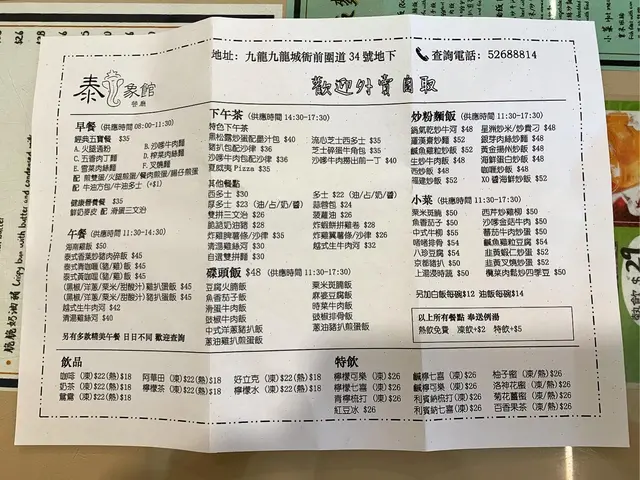 地址: 九龍九龍城衙前圍道 34 號地下
查詢電話: 52688814
泰象館
餐廳
歡迎外賣自取
早餐 (供應時間 08:00-11:30)
經典五寶餐 $35
A. 火腿通粉 B. 沙嗲牛肉麵
C. 五香肉丁麵 D. 榨菜肉絲麵
E. 雪菜肉絲麵 F. 叉燒麵
配 煎雙蛋/火腿煎蛋/餐肉煎蛋/腸仔煎蛋
配 牛油方包/牛油多士 (+$1)
健康晉餐 $35
鮮奶麥皮 配 滑蛋三文治
午餐 (供應時間 11:30-14:30)
海南雞飯 $50
泰式香葉炒豬肉碎飯 $45
泰式青咖喱(豬/雞)飯 $45
泰式黃咖喱(豬/雞)飯 $45
(黑椒/洋蔥/粟米/甜酸汁)雞扒蛋飯 $45
(黑椒/洋蔥/粟米/甜酸汁)豬扒蛋飯 $45
越式生肉牛河 $42
清湯雞絲河 $40
另有多款精美午餐 日日不同 歡迎查詢
下午茶 (供應時間 14:30-17:30)
特色下午茶
黑松露炒蛋配墨汁包 $40 流心芝士西多士 $35
豬扒包配沙律 $36 芝士碎蛋牛角包 $35
沙嗲牛肉包配沙律 $36 沙嗲牛肉撈出前一丁 $40
夏威夷 Pizza $35
其他餐點
西多士 $30 多士 $22 (油/占/奶/醬)
厚多士 $23 (油/占/奶/醬) 蒜蓉包 $24
雙拼三文治 $26 菠蘿油 $26
脆脆奶油豬 $28 炸蝦餅拼雞卷 $28
炸雞脾薯條/沙律 $35 炸雞翼薯條/沙律 $26
清湯雞絲河 $30 越式生肉牛河 $32
自選雙拼麵 $30
碟頭飯 $48 (供應時間 11:30-17:30)
豆腐火腩飯 粟米斑腩飯
魚香茄子飯 麻婆豆腐飯
滑蛋牛肉飯 時菜牛肉飯
豉椒牛肉飯 豉椒排骨飯
中式洋蔥豬扒飯 蔥油豬扒煎蛋飯
蔥油雞煎蛋飯
炒粉麵飯 (供應時間 11:30-17:30)
鍋氣乾炒牛河 $48 星洲炒米/炒貴刁 $48
羅漢齋炒麵 $52 銀芽肉絲炒麵 $52
鹹魚雞粒炒飯 $52 黃金揚州炒飯 $48
生炒牛肉飯 $48 海鮮蛋白炒飯 $52
西炒飯 $48 咖喱炒飯 $48
福建炒飯 $62 XO 醬海鮮炒飯 $52
小菜 (供應時間 11:30-17:30)
粟米斑腩 $50 西芹炒雞柳 $50
魚香茄子 $50 沙嗲金菇牛肉 $50
中式牛柳 $55 蕃茄牛肉炒蛋 $50
啫啫排骨 $54 鹹魚雞粒豆腐 $54
八珍豆腐 $54 韭黃蝦仁炒蛋 $60
京都豬扒 $50 韭黃叉燒炒蛋 $52
上湯浸時蔬 $50 欖菜肉鬆炒四季豆 $50
另加白飯每碗$12 油飯每碗$14
以上所有餐點 奉送例湯
熱飲免費 凍飲+$2 特飲+$5
飲品
咖啡 (凍)$22(熱)$18 阿華田 (凍)$22(熱)$18 好立克 (凍)$22(熱)$18
奶茶 (凍)$22(熱)$18 檸檬茶 (凍)$22(熱)$18 檸檬水 (凍)$22(熱)$18
鴛鴦 (凍)$22(熱)$18
特飲
檸檬可樂 (凍)$26 鹹檸七喜 (凍)$26 柚子蜜 (凍/熱)$26
檸檬七喜 (凍)$26 鹹檸可樂 (凍)$26 洛神花蜜 (凍/熱)$26
青檸梳打 (凍)$26 利賓納梳打(凍)$26 菊花薑蜜 (凍/熱)$26
紅豆冰 $26 利賓納七喜(凍)$26 百香果茶 (凍/熱)$26
脆脆奶油豬 Crispy bun with butter and condensed milk
$29